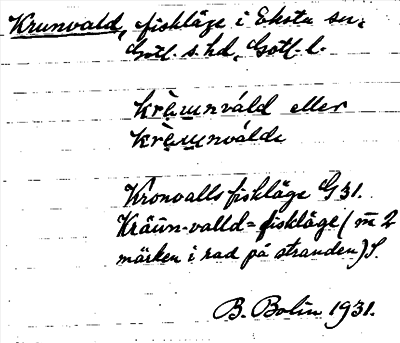 Krunvald, fiskläge i Eksta sn,
Gotl. s. hd, Gotl. l.
krèu̯nvald eller
krèu̯nválde
Kronvalls fiskläge G 31.
Kräûn-valld= fiskläge (m̅ 2
märken i rad på stranden) S.
B. Bolin 1931.